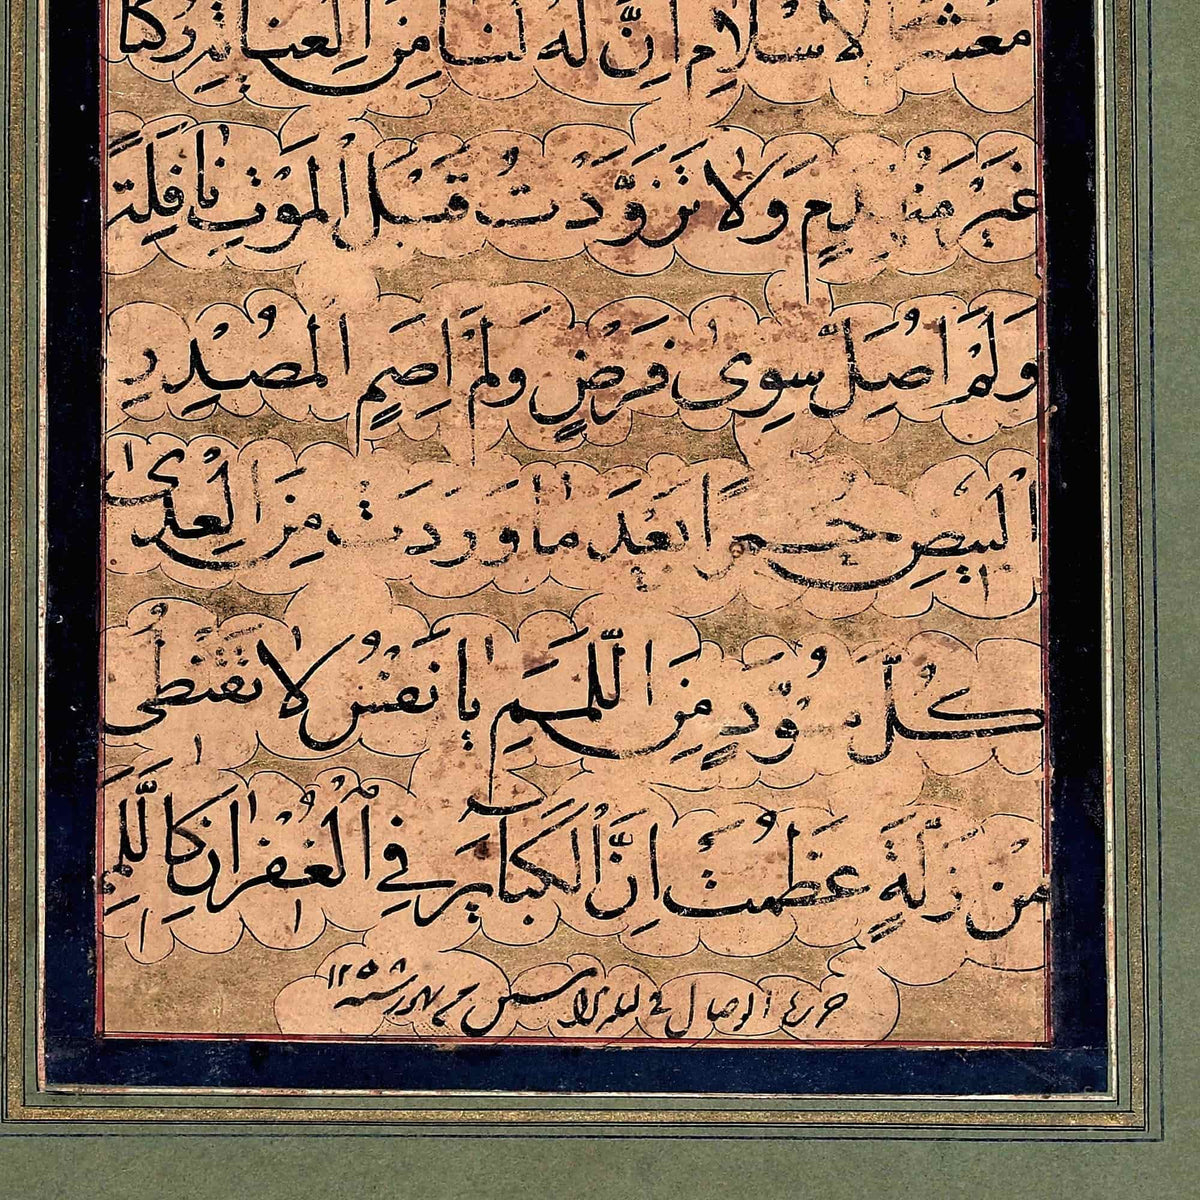 معشر الاسلام اِنَّ له لنا مِنَ العنايةِ ركنا
غَيْرَ مُنْهَدِمٍ وَلا تَزَوَّدْتُ قَبْلَ المَوْتِ نافِلَةً
وَلَمْ اُصَلِّ سِوى فَرْضٍ وَلَمْ اَصُمِ المُصْدِرِ
البيضِ حُمْرًا بَعْدَ ما وَرَدَتْ مِنَ العِدى
كُلَّ مُسْوَدٍّ مِنَ اللِّمَمِ يا نَفْسُ لا تَقْنَطى
مِنْ زَلَّةٍ عَظُمَتْ اِنَّ الْكَبائِرَ فِي الْغُفْرانِ كَاللَّمَمِ
حرره الوصال في ليله سنه ١٢٥٠